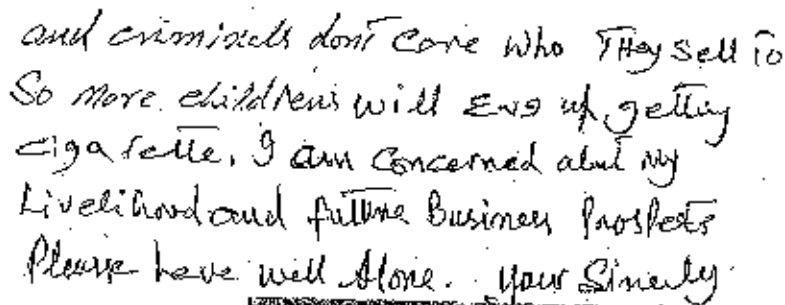 and criminels dont Care who They Sell To
So more childrens will End up getting
cigarette. I am Concerned about my
Livelihood and future Business Prospets
Please have well Alone. your Sincerly